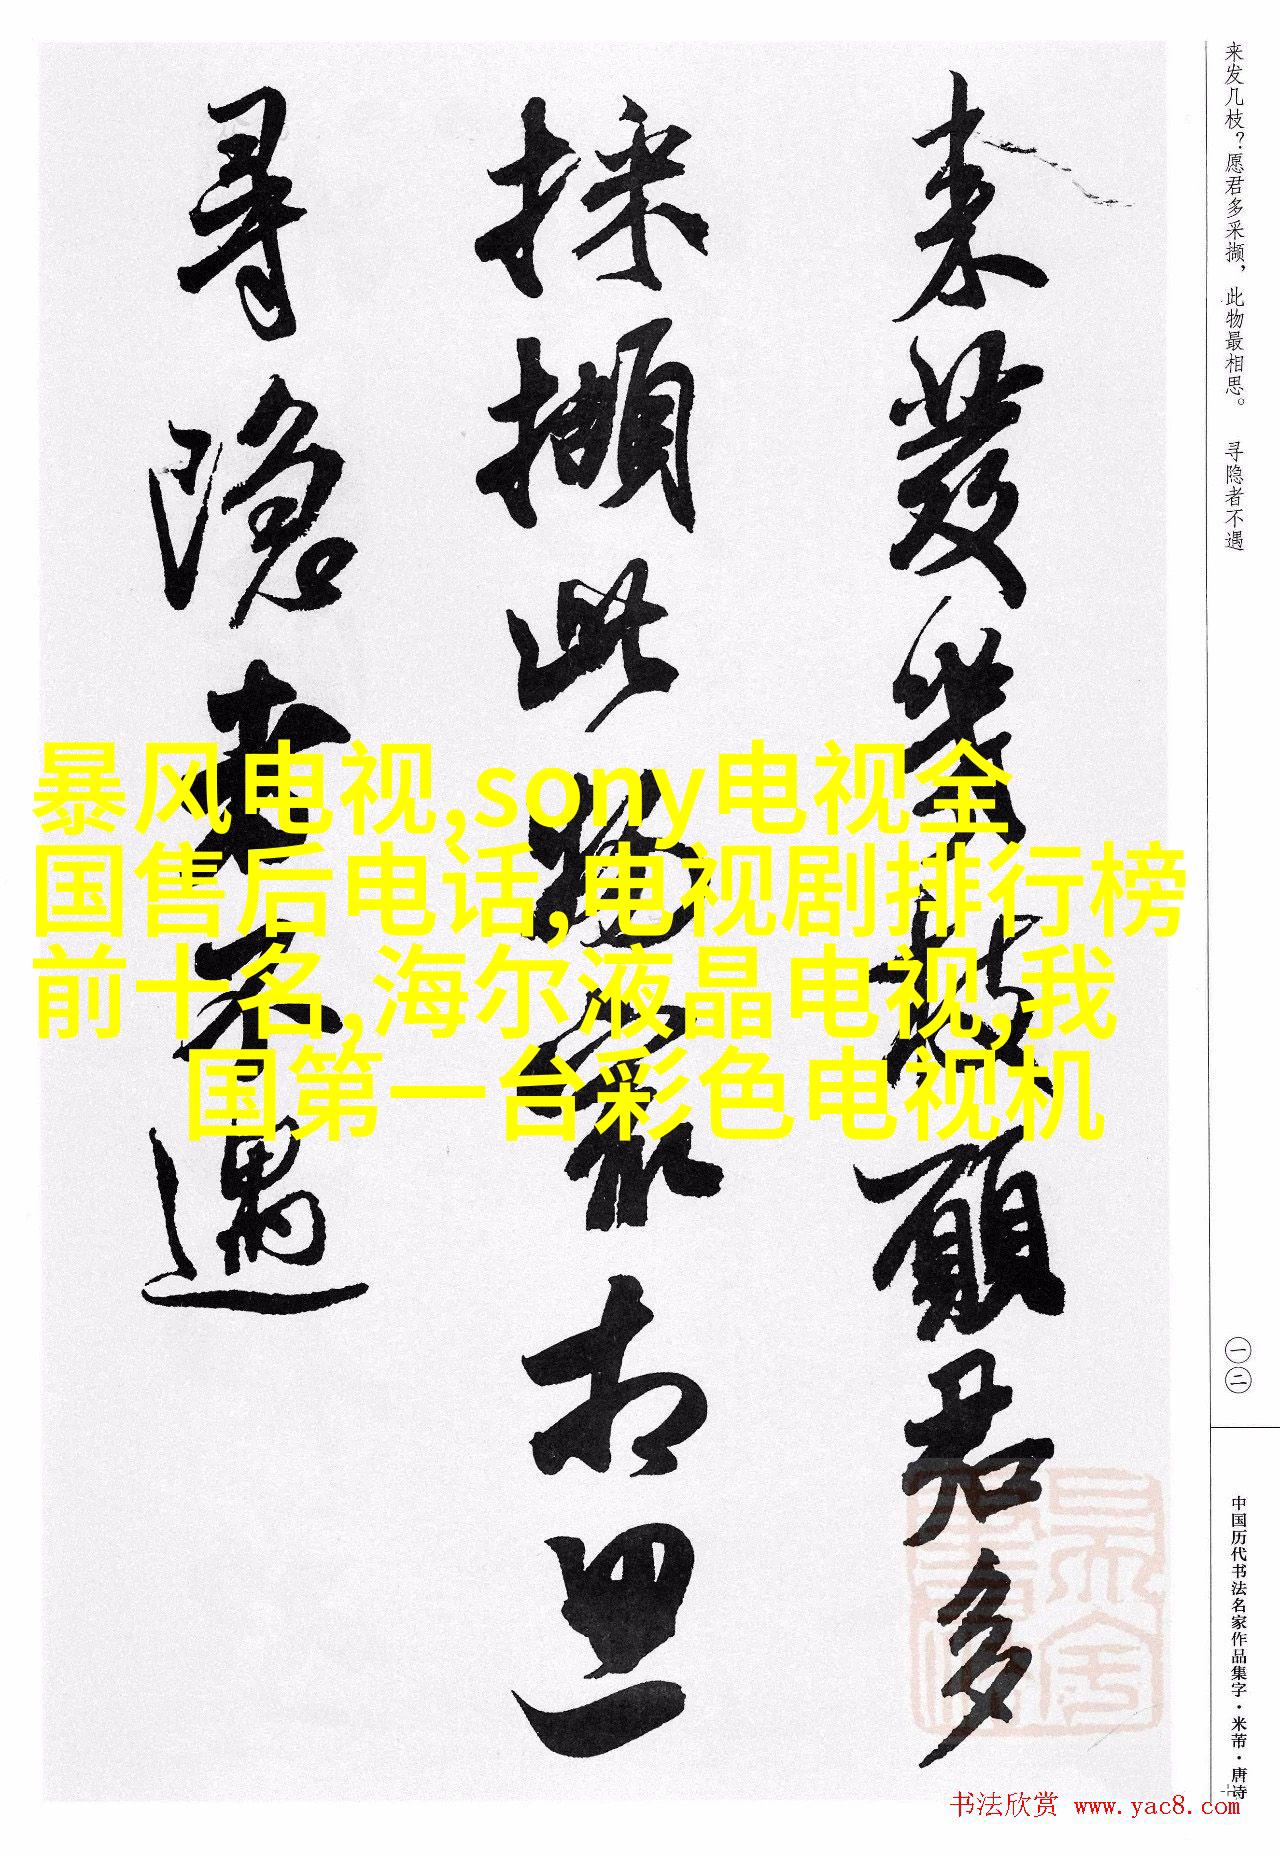 来发几枝？愿君多采撷，此物最相思。 寻隐者不遇
来發幾枝願君多
採撷此物最相思
寻隐者不遇
暴风电视,sony电视全
国售后电话,电视剧排行榜
前十名,海尔液晶电视,我
国第一台彩色电视机
一二
中国历代书法名家作品集字·米芾·唐诗
书法欣赏 www.yac8.com